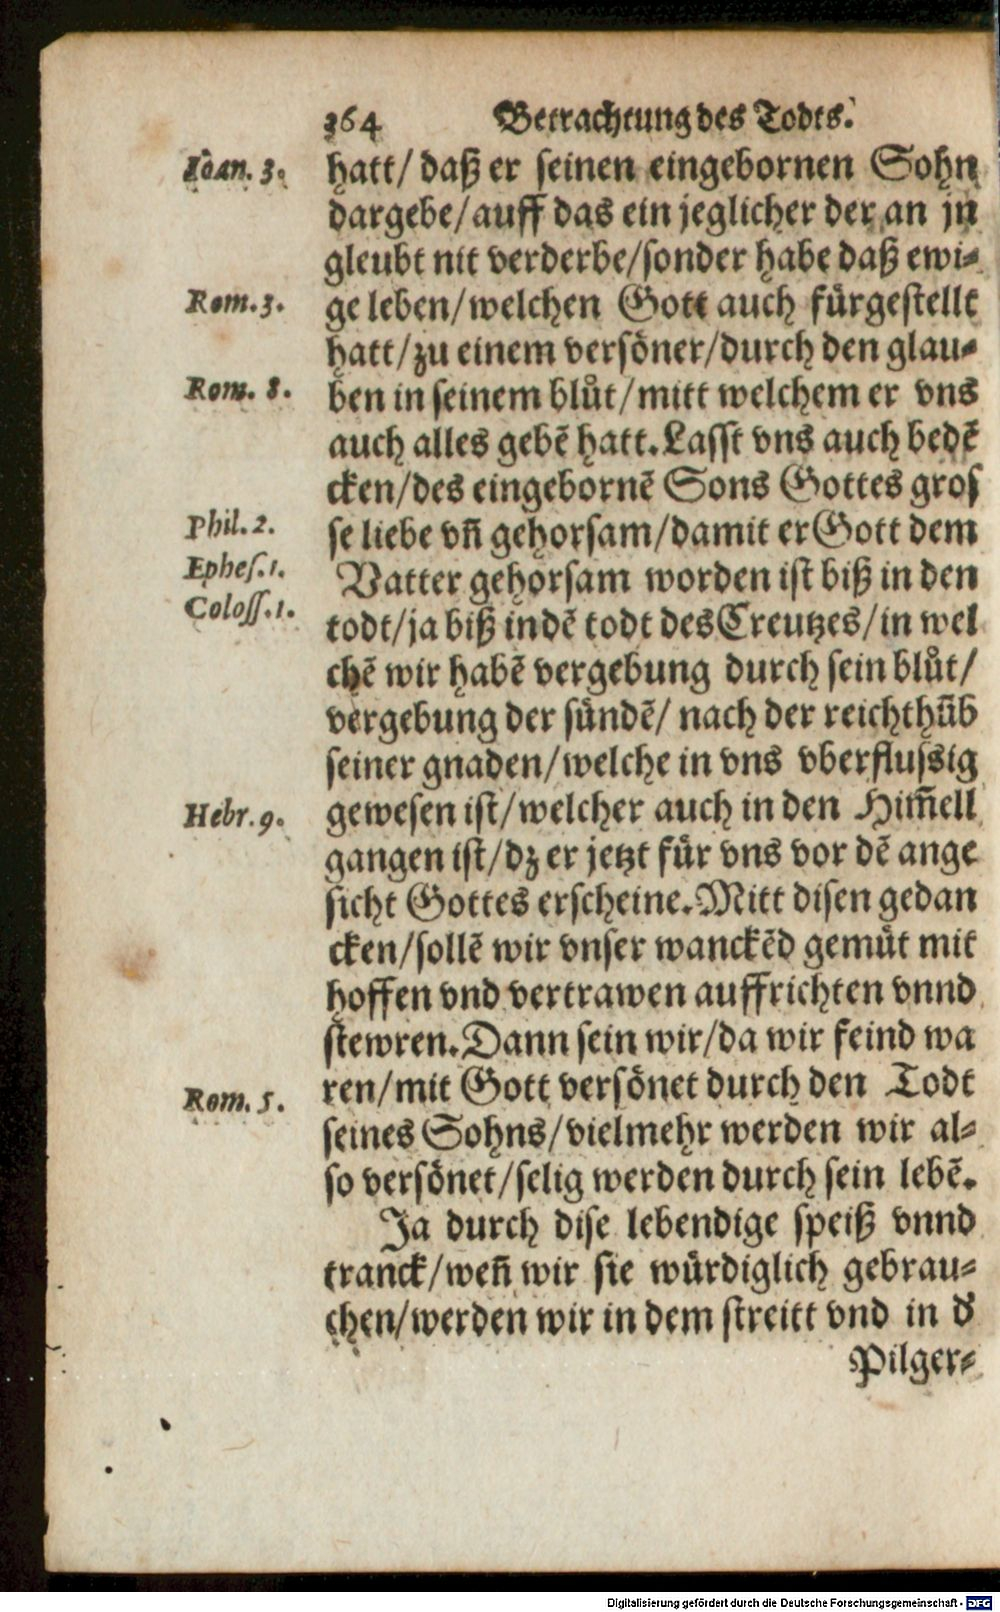 364 Betrachtung des Todts.
Ioan. 3. hatt/ daß er seinen eingebornen Sohn
dargebe/auff das ein jeglicher der an jn
gleubt nit verderbe/sonder habe daß ewi⸗
Rom. 3. ge leben/welchen Gott auch fürgestellt
hatt/zu einem versöner/durch den glau⸗
Rom. 8. ben in seinem blůt/mitt welchem er vns
auch alles gebẽ hatt. Lasst vns auch bedẽ
cken/des eingebornẽ Sons Gottes gros
Phil. 2. se liebe vñ gehorsam/damit er Gott dem
Ephes. 1. Vatter gehorsam worden ist biß in den
Coloss. 1. todt/ja biß in dẽ todt des Creutzes/in wel
chẽ wir habẽ vergebung durch sein blůt/
vergebung der sündẽ/ nach der reichthũb
seiner gnaden/welche in vns vberflussig
Hebr. 9. gewesen ist/welcher auch in den Him̃ell
gangen ist/dz er jetzt für vns vor dẽ ange
sicht Gottes erscheine. Mitt disen gedan
cken/sollẽ wir vnser wanckẽd gemüt mit
hoffen vnd vertrawen auffrichten vnnd
stewren. Dann sein wir/da wir feind wa
Rom. 5. ren/mit Gott versönet durch den Todt
seines Sohns/vielmehr werden wir al⸗
so versönet/selig werden durch sein lebẽ.
Ja durch dise lebendige speiß vnnd
tranck/weñ wir sie würdiglich gebrau⸗
chen/werden wir in dem streitt vnd in d'
Pilger⸗
Digitalisierung gefördert durch die Deutsche Forschungsgemeinschaft - DFG